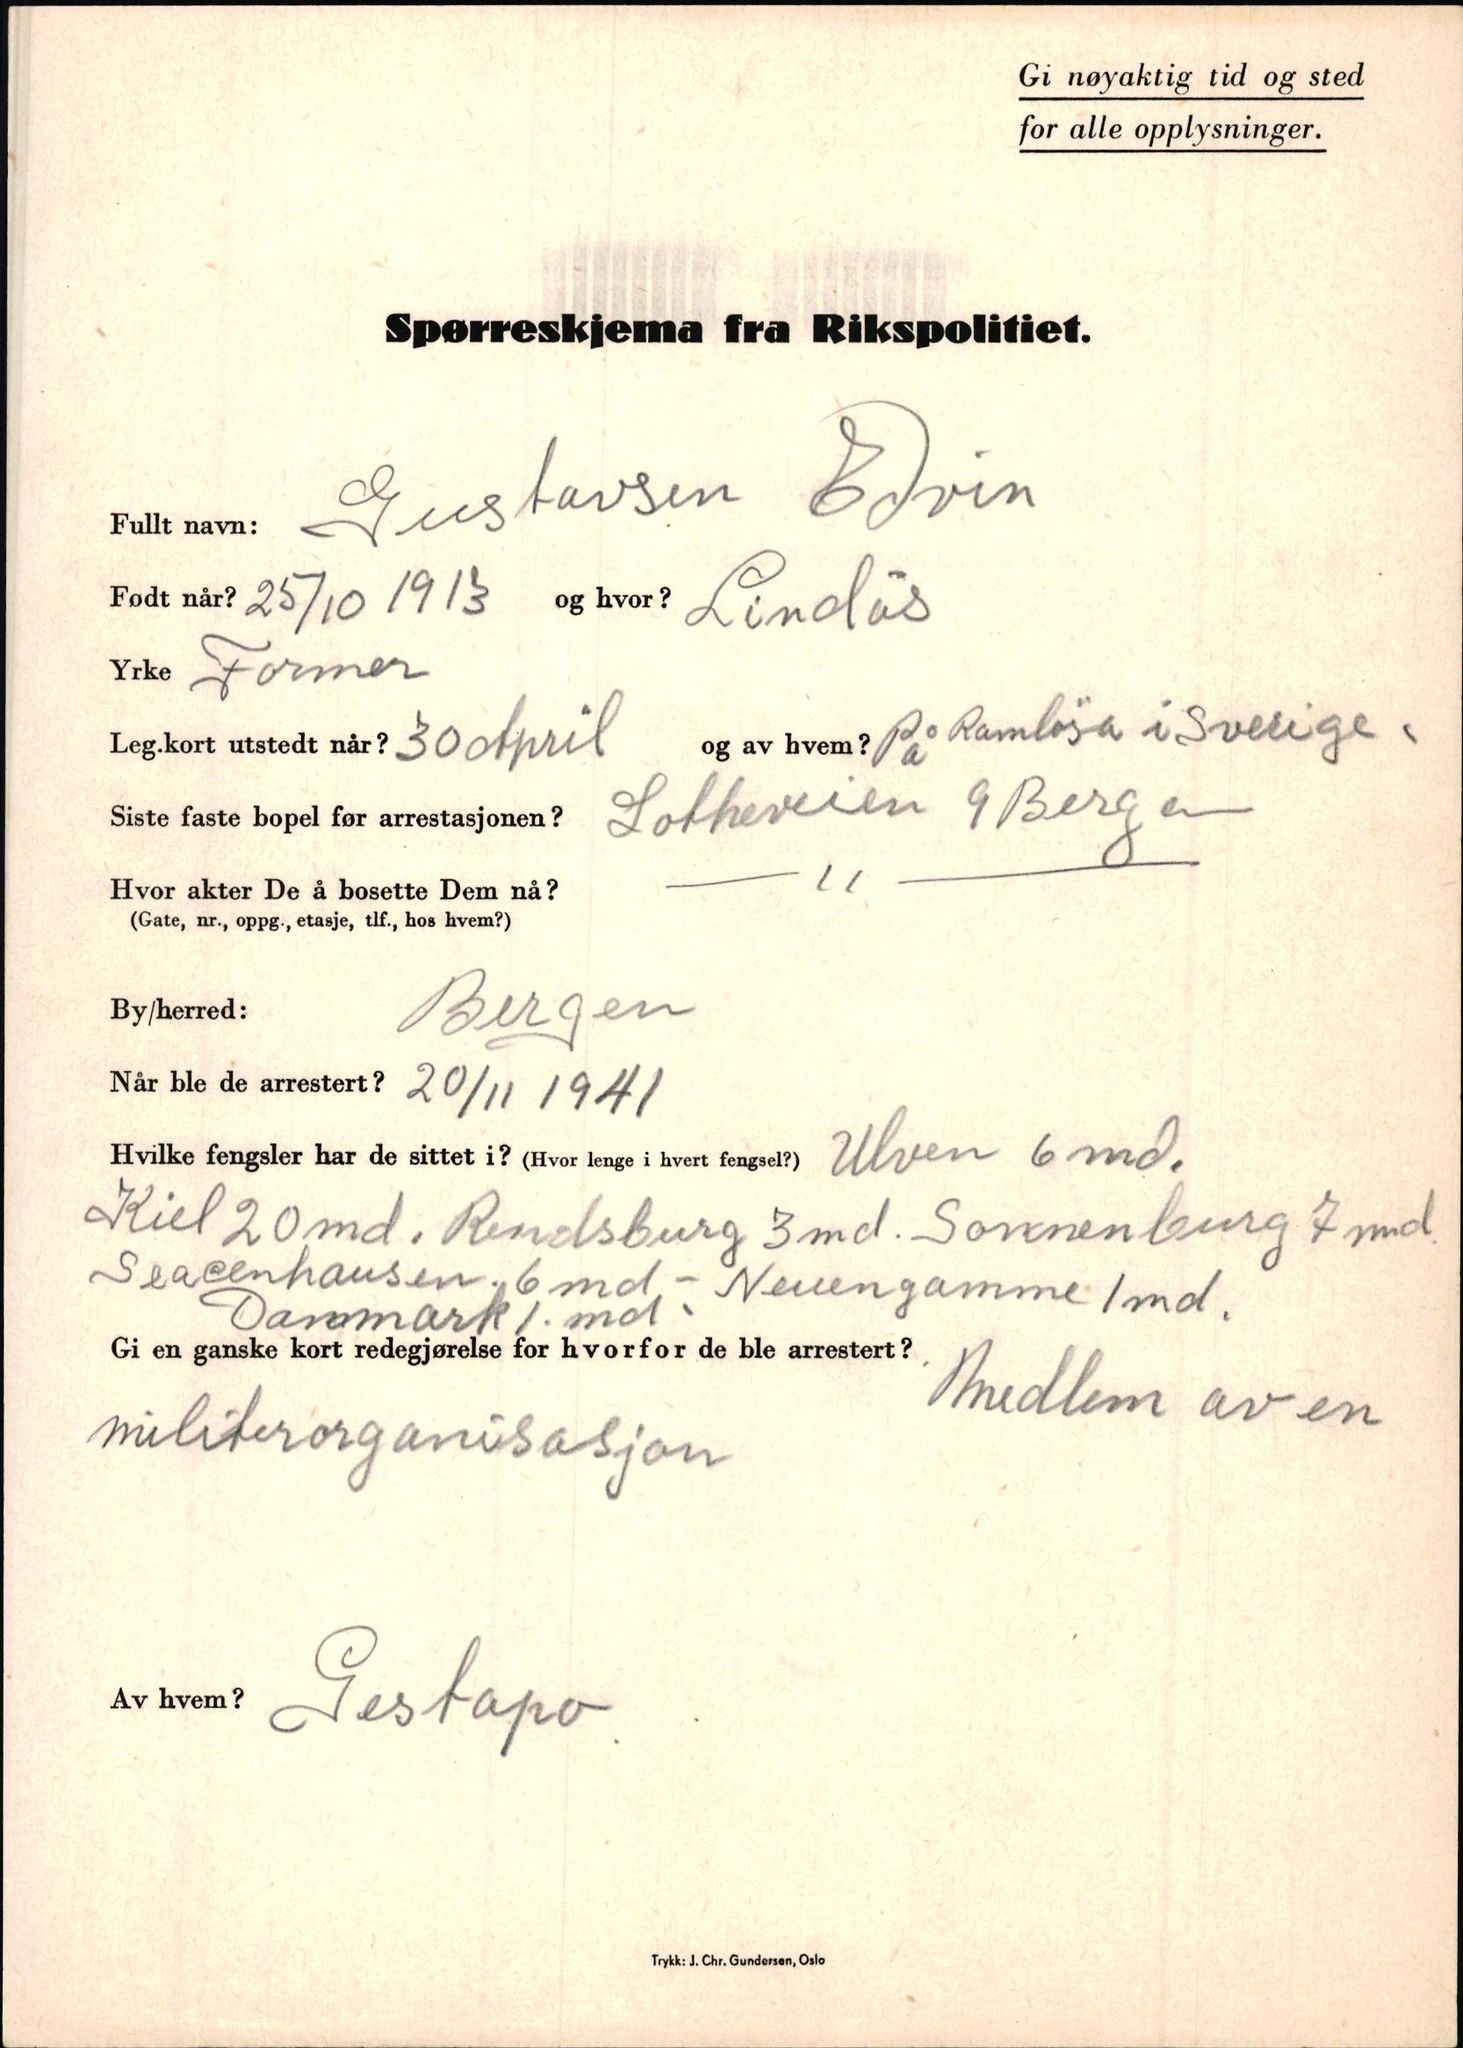 Gi nøyaktig tid og sted
for alle opplysninger.
Spørreskjema fra Rikspolitiet.
Fullt navn: Gustavsen Edvin
Født når? 25/10 1913 og hvor? Lindås
Yrke Former
Leg.kort utstedt når? 30 April og av hvem? På Ramlösa i Sverige.
Siste faste bopel før arrestasjonen? Lotheveien 9 Bergen
Hvor akter De å bosette Dem nå? — 11 —
(Gate, nr., oppg., etasje, tlf., hos hvem?)
By/herred: Bergen
Når ble de arrestert? 20/11 1941
Hvilke fengsler har de sittet i? (Hvor lenge i hvert fengsel?) Ulven 6 md.
Kiel 20 md. Rendsburg 3 md. Sonnenburg 7 md.
Sacenhausen. 6 md - Neuengamme 1 md.
Danmark 1. md.
Gi en ganske kort redegjørelse for hvorfor de ble arrestert? Medlem av en
militerorganisasjon
Av hvem? Gestapo.
Trykk: J. Chr. Gundersen, Oslo